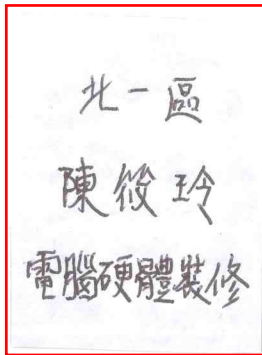 北一區
陳筱玲
電腦硬體裝修